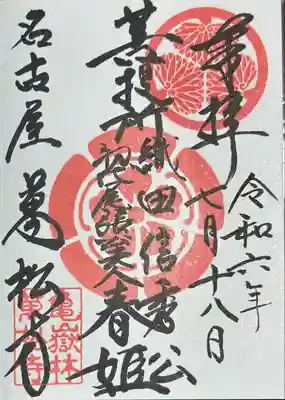 奉拝
令和六年
七月十八日
菩提所
織田信秀公
春姫
名古屋 萬松寺
龜嶽林
萬松寺